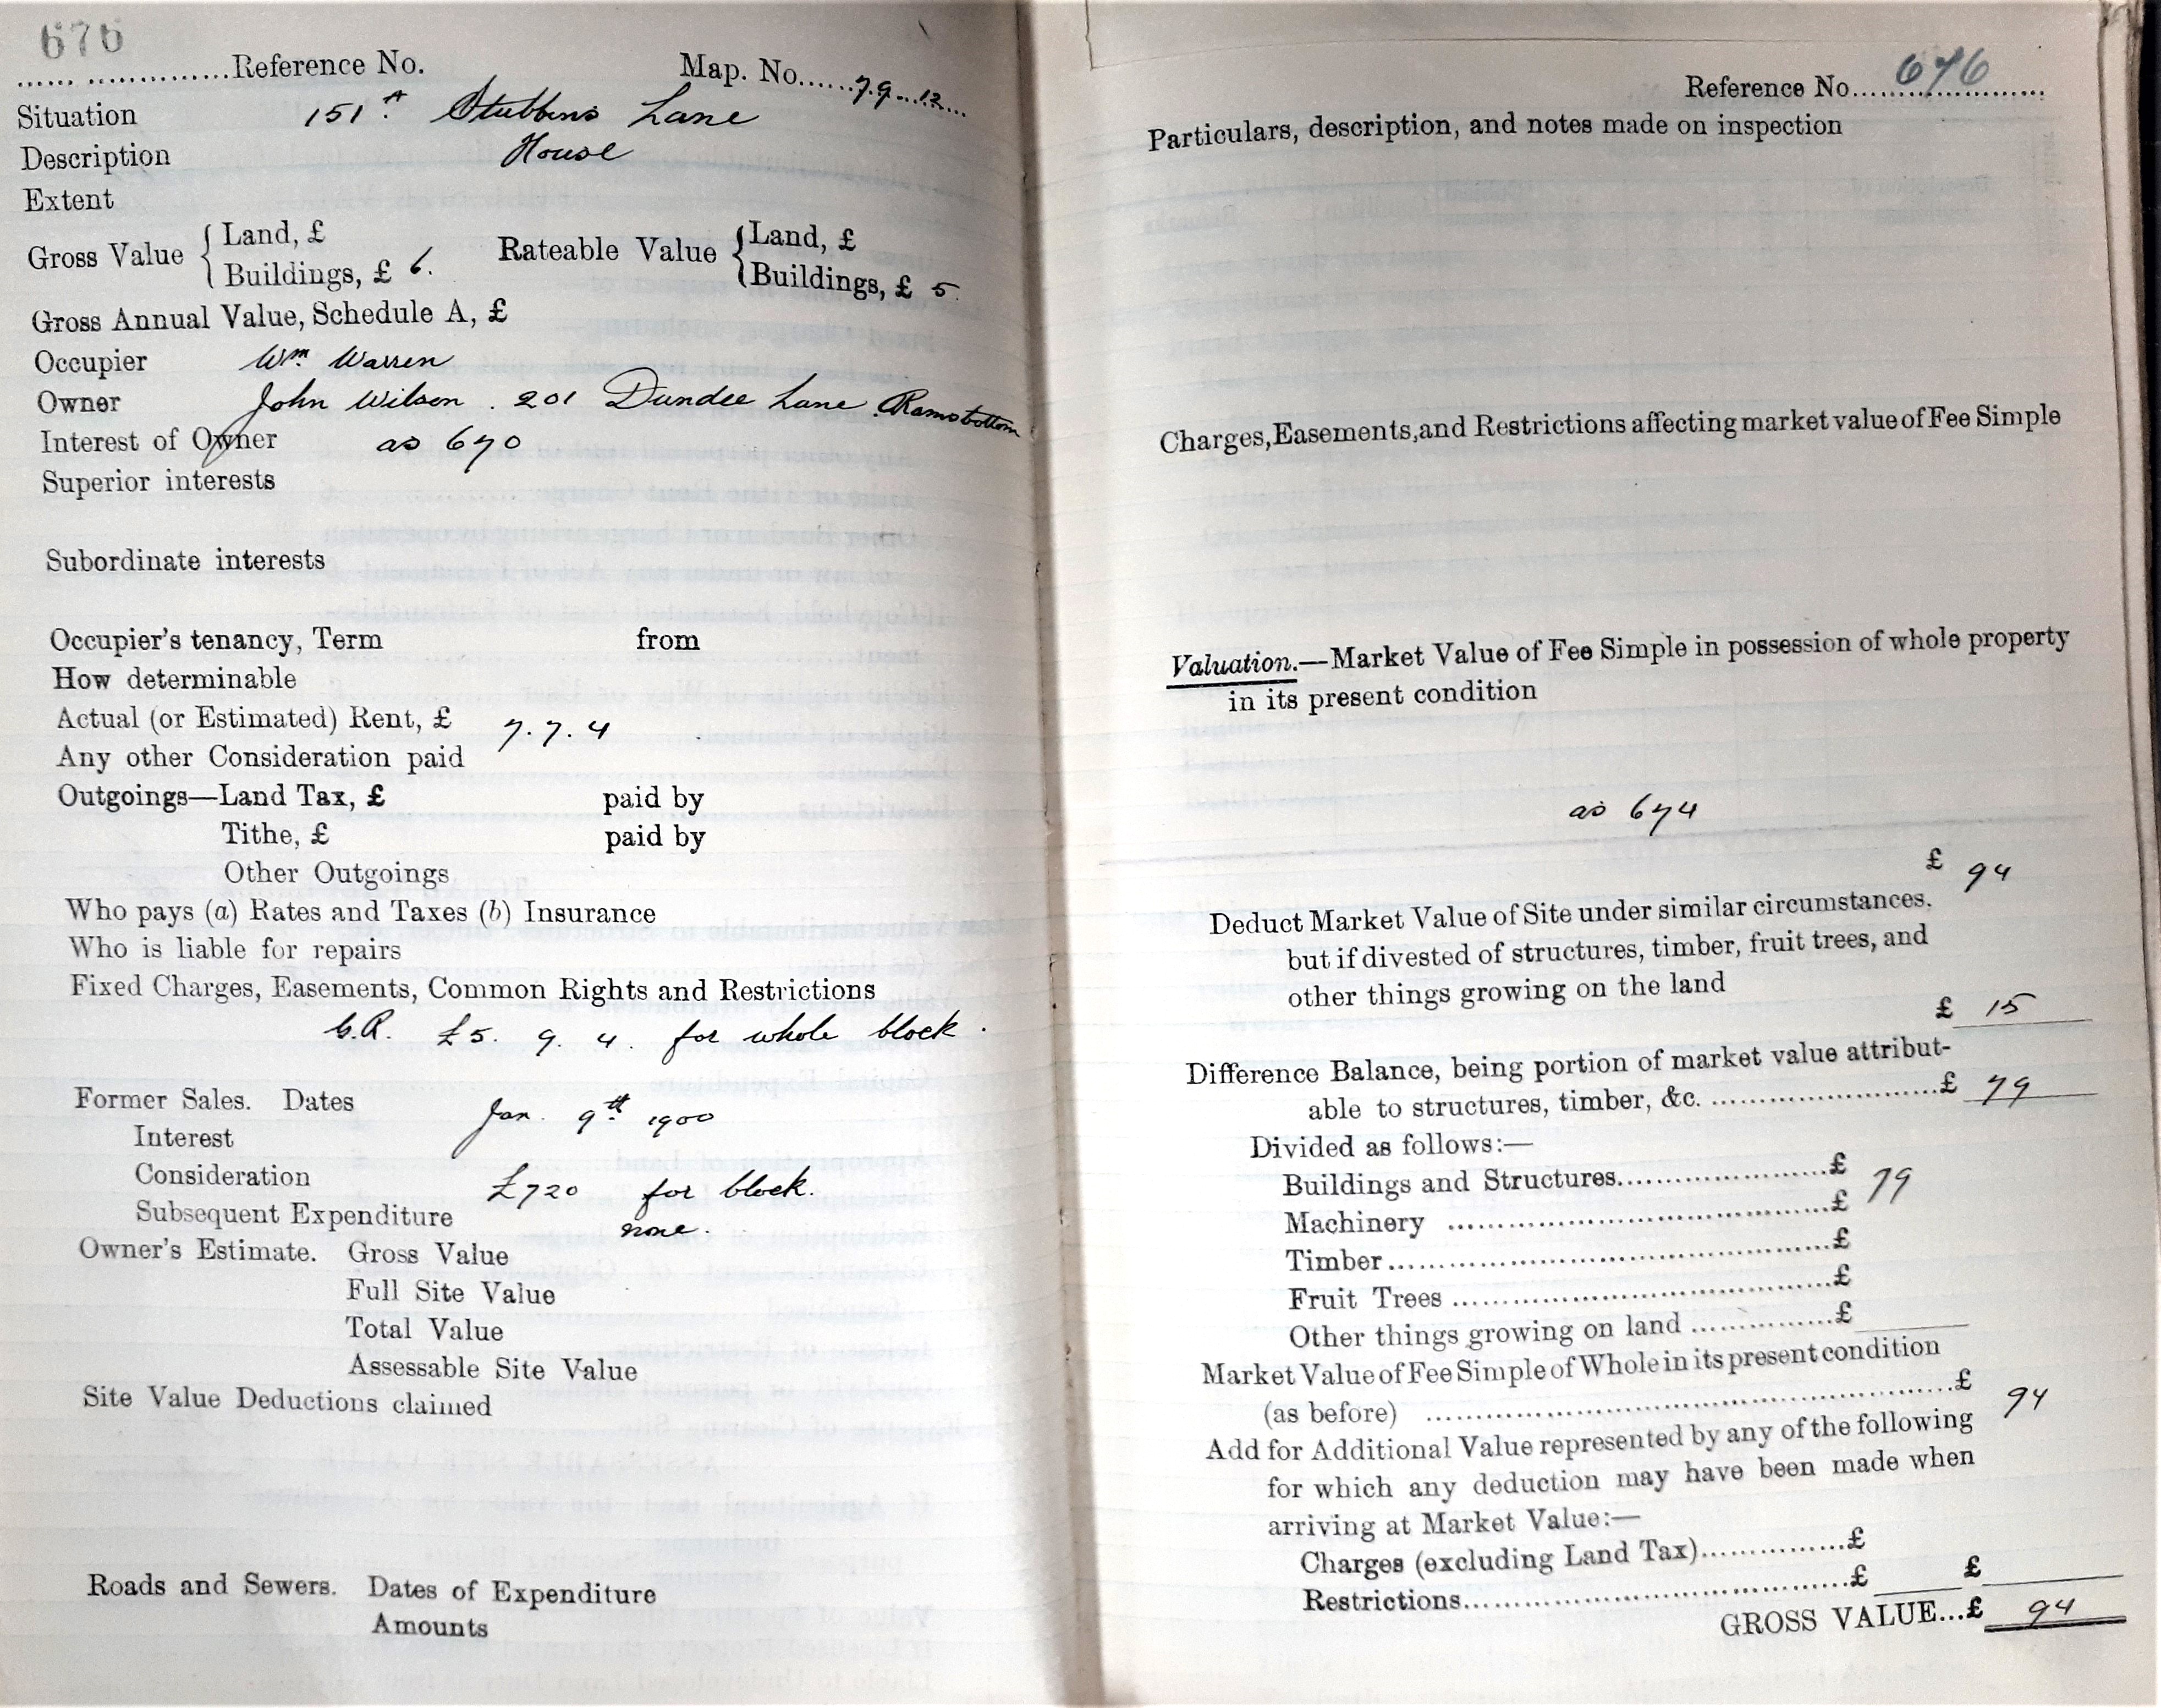 676
...... ...............Reference No. Map. No......79..12...
Situation 151A Stubbins Lane
Description House
Extent
Gross Value { Land, £ Rateable Value { Land, £
Buildings, £ 6. Buildings, £ 5
Gross Annual Value, Schedule A, £
Occupier Wm. Warren
Owner John Wilson. 201 Dundee Lane. Ramsbottom
Interest of Owner as 670
Superior interests
Subordinate interests
Occupier's tenancy, Term from
How determinable
Actual (or Estimated) Rent, £ 7.7.4
Any other Consideration paid
Outgoings—Land Tax, £ paid by
Tithe, £ paid by
Other Outgoings
Who pays (a) Rates and Taxes (b) Insurance
Who is liable for repairs
Fixed Charges, Easements, Common Rights and Restrictions
G.R. £5. 9. 4. for whole block.
Former Sales. Dates Jan. 9th 1900
Interest
Consideration £720 for block.
Subsequent Expenditure none.
Owner's Estimate. Gross Value
Full Site Value
Total Value
Assessable Site Value
Site Value Deductions claimed
Roads and Sewers. Dates of Expenditure
Amounts
Reference No....676....
Particulars, description, and notes made on inspection
Charges, Easements, and Restrictions affecting market value of Fee Simple
Valuation.—Market Value of Fee Simple in possession of whole property
in its present condition
as 674
£ 94
Deduct Market Value of Site under similar circumstances,
but if divested of structures, timber, fruit trees, and
other things growing on the land
£ 15
Difference Balance, being portion of market value attribut-
able to structures, timber, &c. ........................£ 79
Divided as follows:—
Buildings and Structures......................£ 79
Machinery ......................................£
Timber............................................£
Fruit Trees ......................................£
Other things growing on land ...............£
Market Value of Fee Simple of Whole in its present condition
(as before) ......................................................£ 94
Add for Additional Value represented by any of the following
for which any deduction may have been made when
arriving at Market Value:—
Charges (excluding Land Tax)...............£
Restrictions.......................................£ £
GROSS VALUE...£ 94